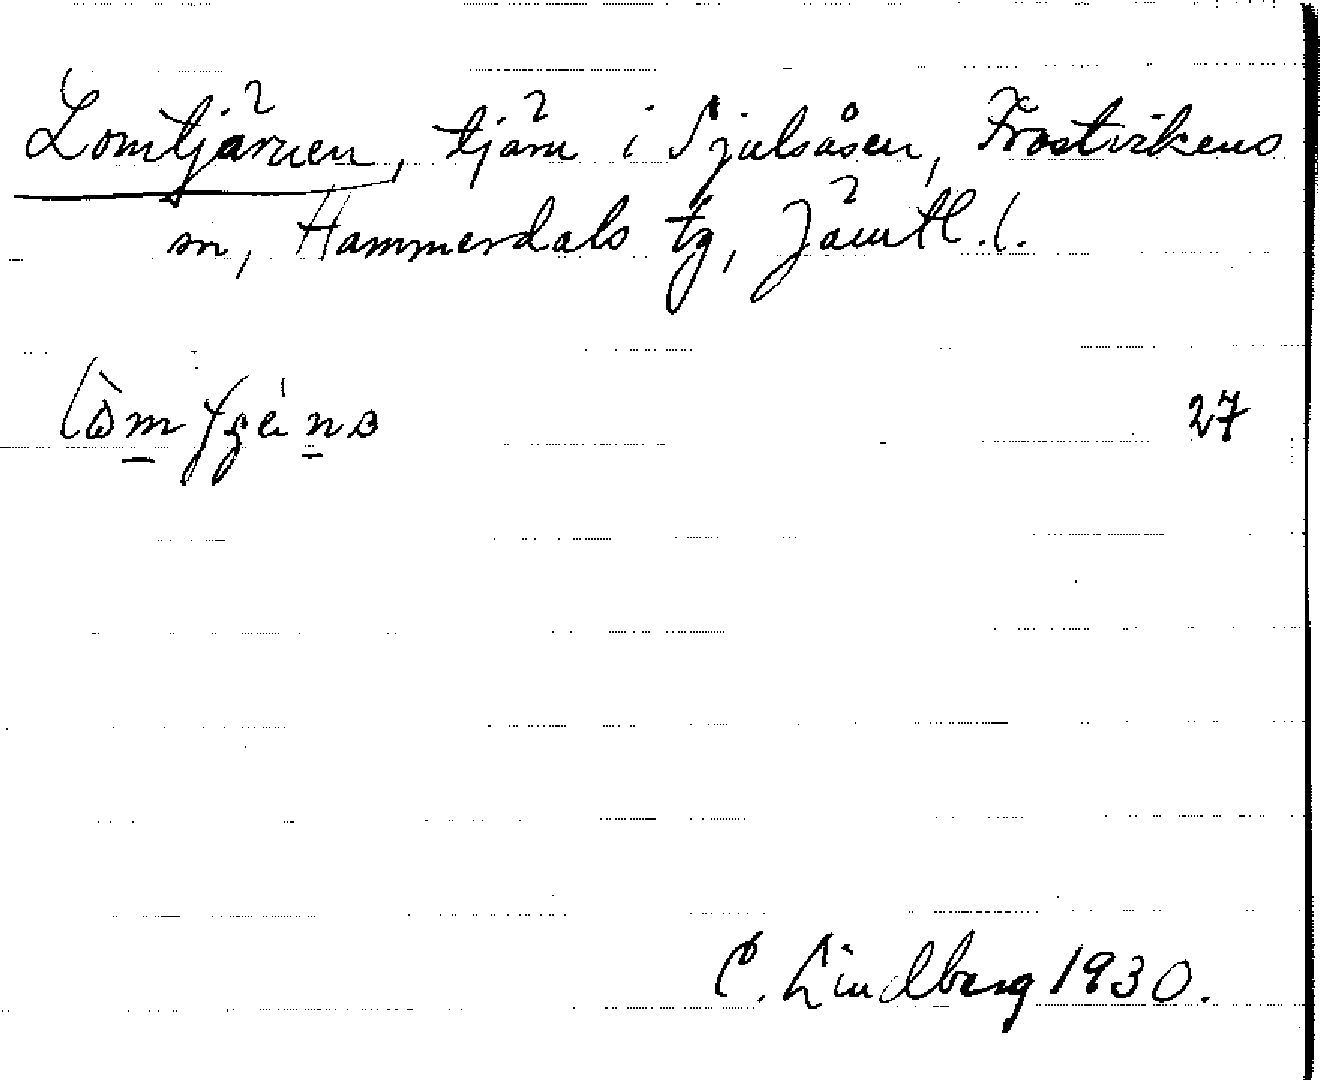 Lomtjärnen, tjärn i Sjulsåsen, Frostvikens
m, Hammerdals tg, Jämtl. l.
27
C. Lindberg 1930.